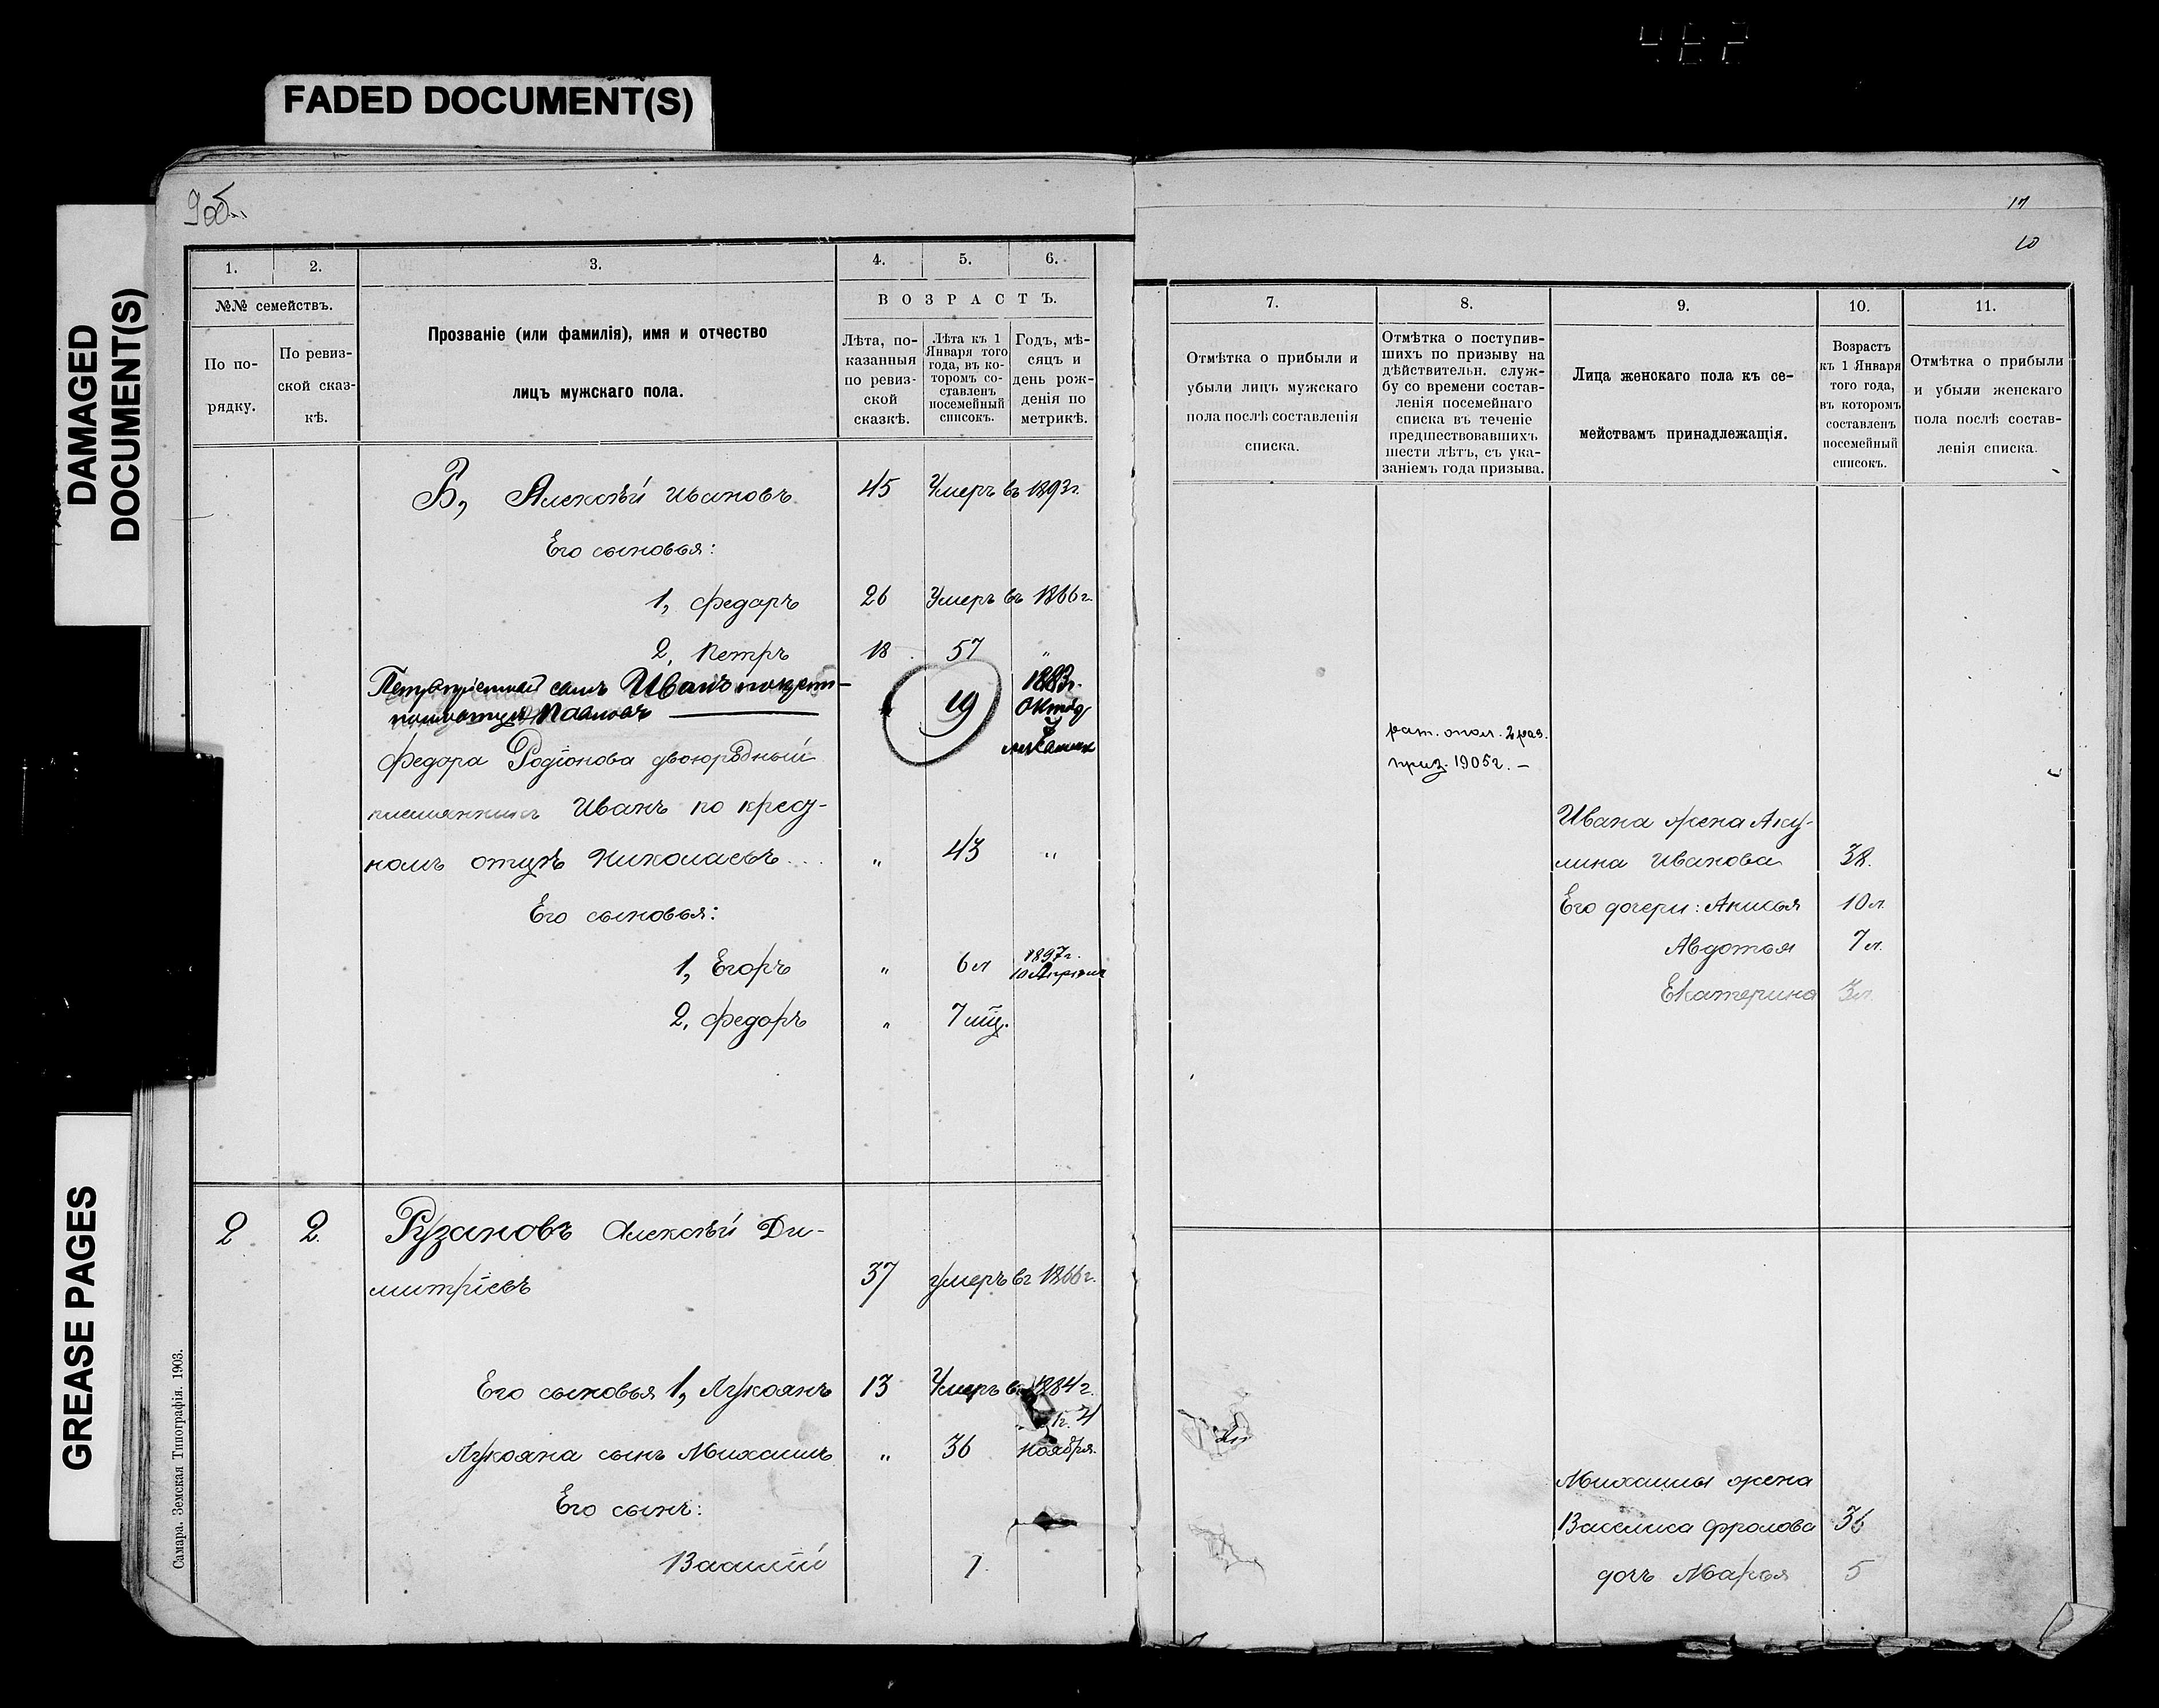 FADED DOCUMENT(S)
DAMAGED
DOCUMENT(S)
GREASE PAGES
9об.
1.
2.
3.
4.
5.
6.
№№ семействъ.
По по-
рядку.
По ревиз-
ской сказ-
кѣ.
Прозваніе (или фамилія), имя и отчество
лицъ мужскаго пола.
ВОЗРАСТЪ.
Лѣта, по-
казанныя
по ревиз-
ской
сказкѣ.
Лѣта къ 1
Января того
года, въ ко-
торомъ со-
ставленъ
посемейный
списокъ.
Годъ, мѣ-
сяцъ и
день рож-
денія по
метрикѣ.
Б, Алексѣй Ивановъ 45 Умеръ въ 1893г.
Его сыновья:
1, Федаръ 26 Умеръ въ 1866г.
2, Петръ 18 57 "
сынъ Иванъ
Павловъ 19 1883г. Октяб 7
Федора Родіонова двоюродный
племянникъ Иванъ по крест-
номъ отцѣ Николаевъ... " 43 "
Его сыновья:
1, Егоръ " 6л 1897г. 10 Апрѣля
2, Федоръ " 7 мѣс.
2 2. Рузановъ Алексѣй Ди-
митріевъ 37 умеръ въ 1866г.
Его сыновья 1, Лукоянъ 13 Умеръ въ 1884г.
Лукояна сынъ Михаилъ " 36 г. 21 Ноября.
Его сынъ:
Василій 7.
Самара. Земская Типографія. 1903.
17
10
7.
8.
9.
10.
11.
Отмѣтка о прибыли и
убыли лицъ мужскаго
пола послѣ составленія
списка.
Отмѣтка о поступив-
шихъ по призыву на
дѣйствительн. служ-
бу со времени состав-
ленія посемейнаго
списка въ теченіе
предшествовавшихъ
шести лѣтъ, съ ука-
заніемъ года призыва.
Лица женскаго пола къ се-
мействамъ принадлежащія.
Возрастъ
къ 1 Января
того года,
въ которомъ
составленъ
посемейный
списокъ.
Отмѣтка о прибыли
и убыли женскаго
пола послѣ состав-
ленія списка.
рат. опол. 2 раз.
приз. 1905г. —
Ивана жена Аку-
лина Иванова 38.
Его дочери: Анисья 10л.
Авдотья 7л.
Екатерина 3л.
Михаилы жена
Василиса Фролова 36
дочь Марья 5